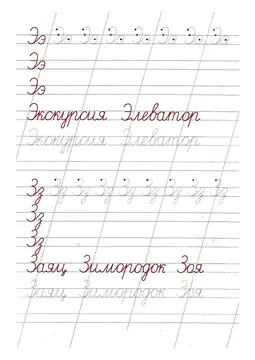 Ээ Ээ Ээ Ээ Ээ Ээ Ээ Ээ
Ээ
Ээ
Экскурсия Элеватор
Экскурсия Элеватор
Зз Зз Зз Зз Зз Зз Зз Зз
Зз
Зз
Заяц Зимородок Зоя
Заяц Зимородок Зоя